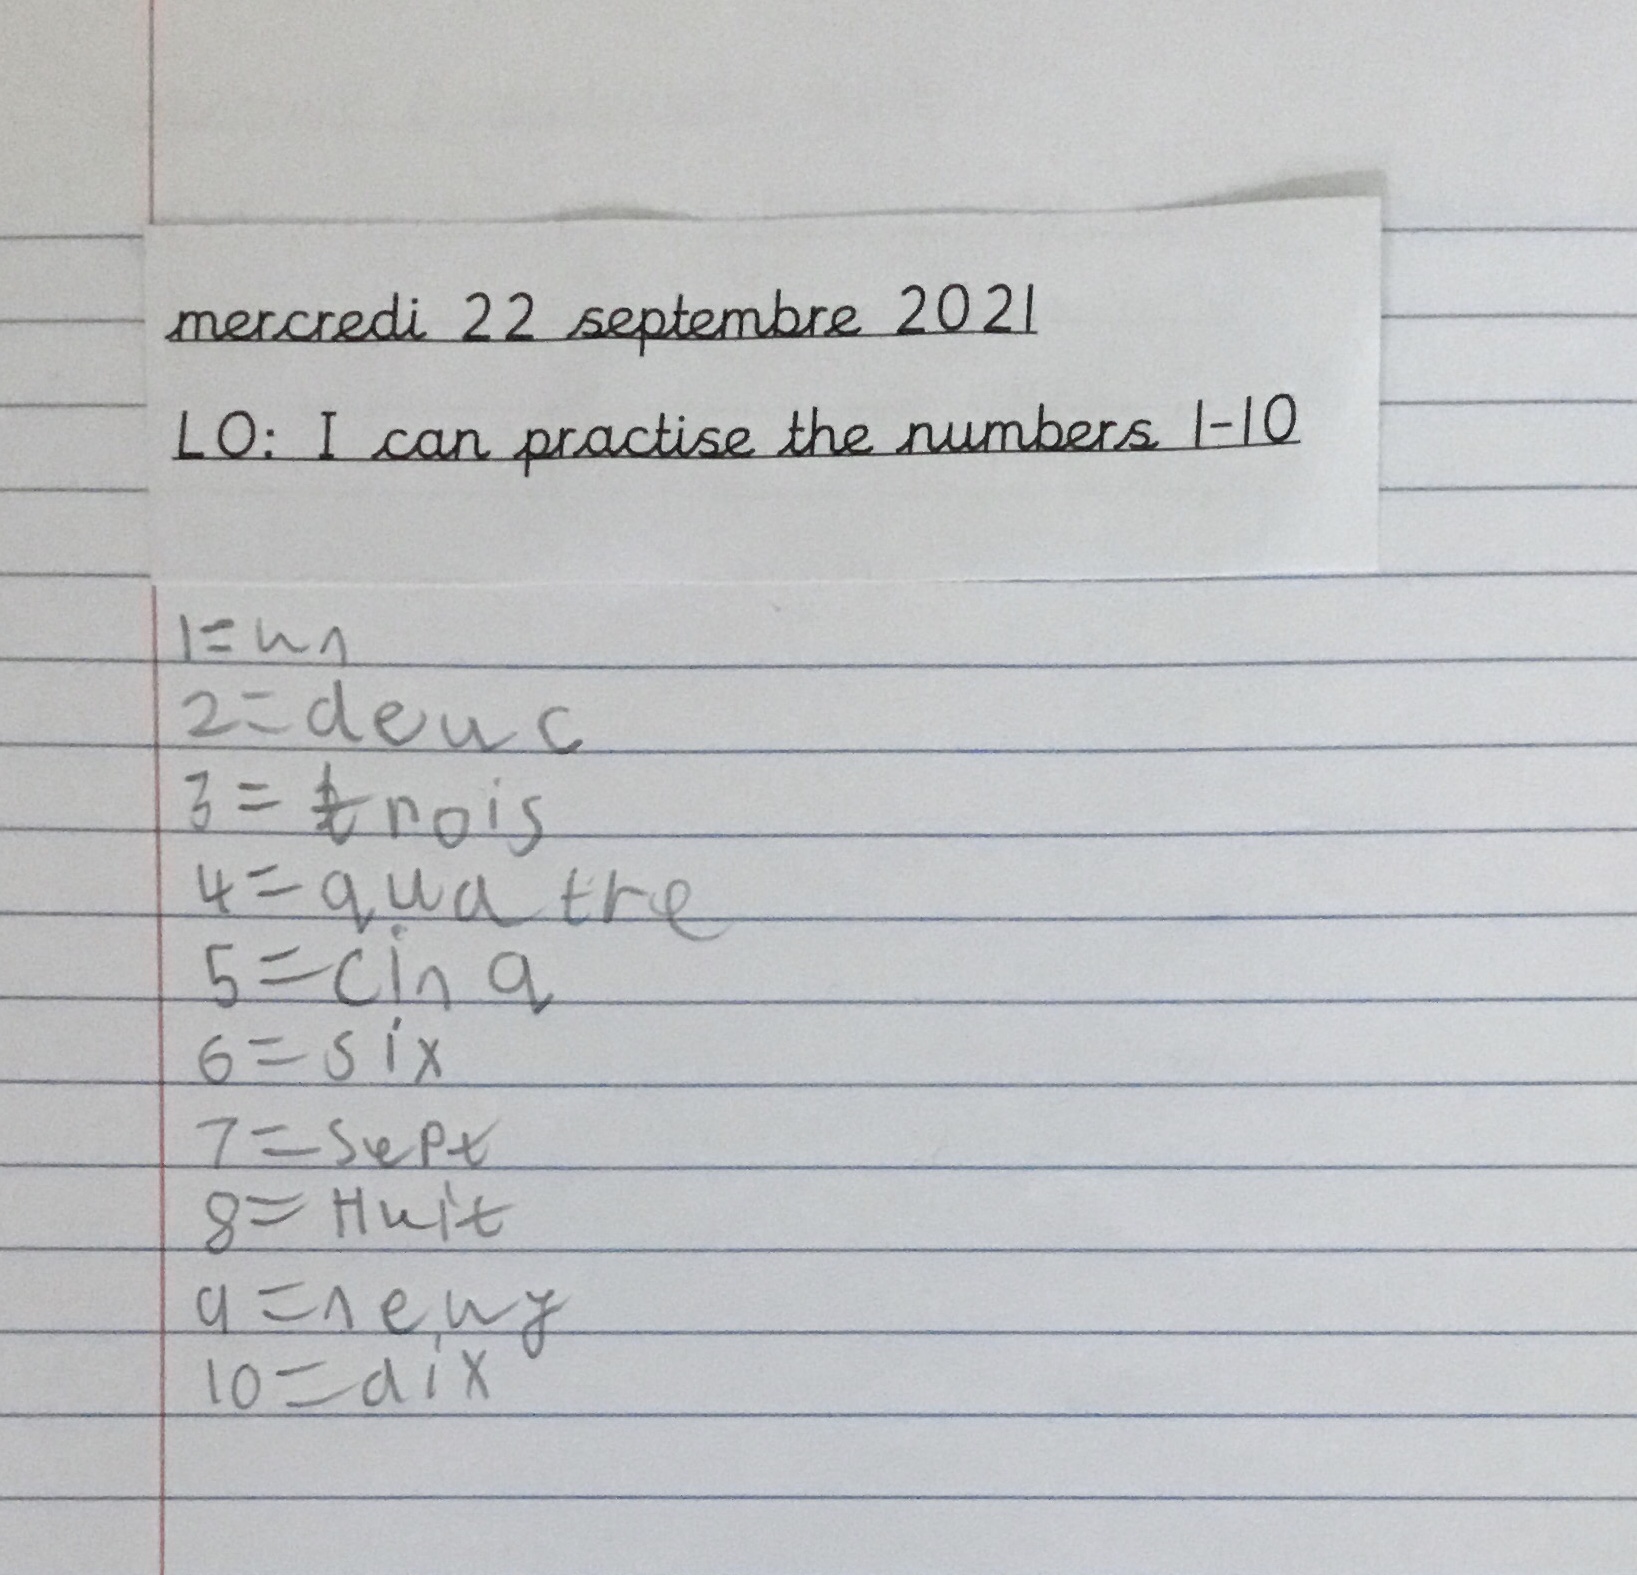 mercredi 22 septembre 2021
LO: I can practise the numbers 1-10
1=un
2=deuc
3=trois
4=quatre
5=cinq
6=six
7=sept
8=Huit
9=neuf
10=dix